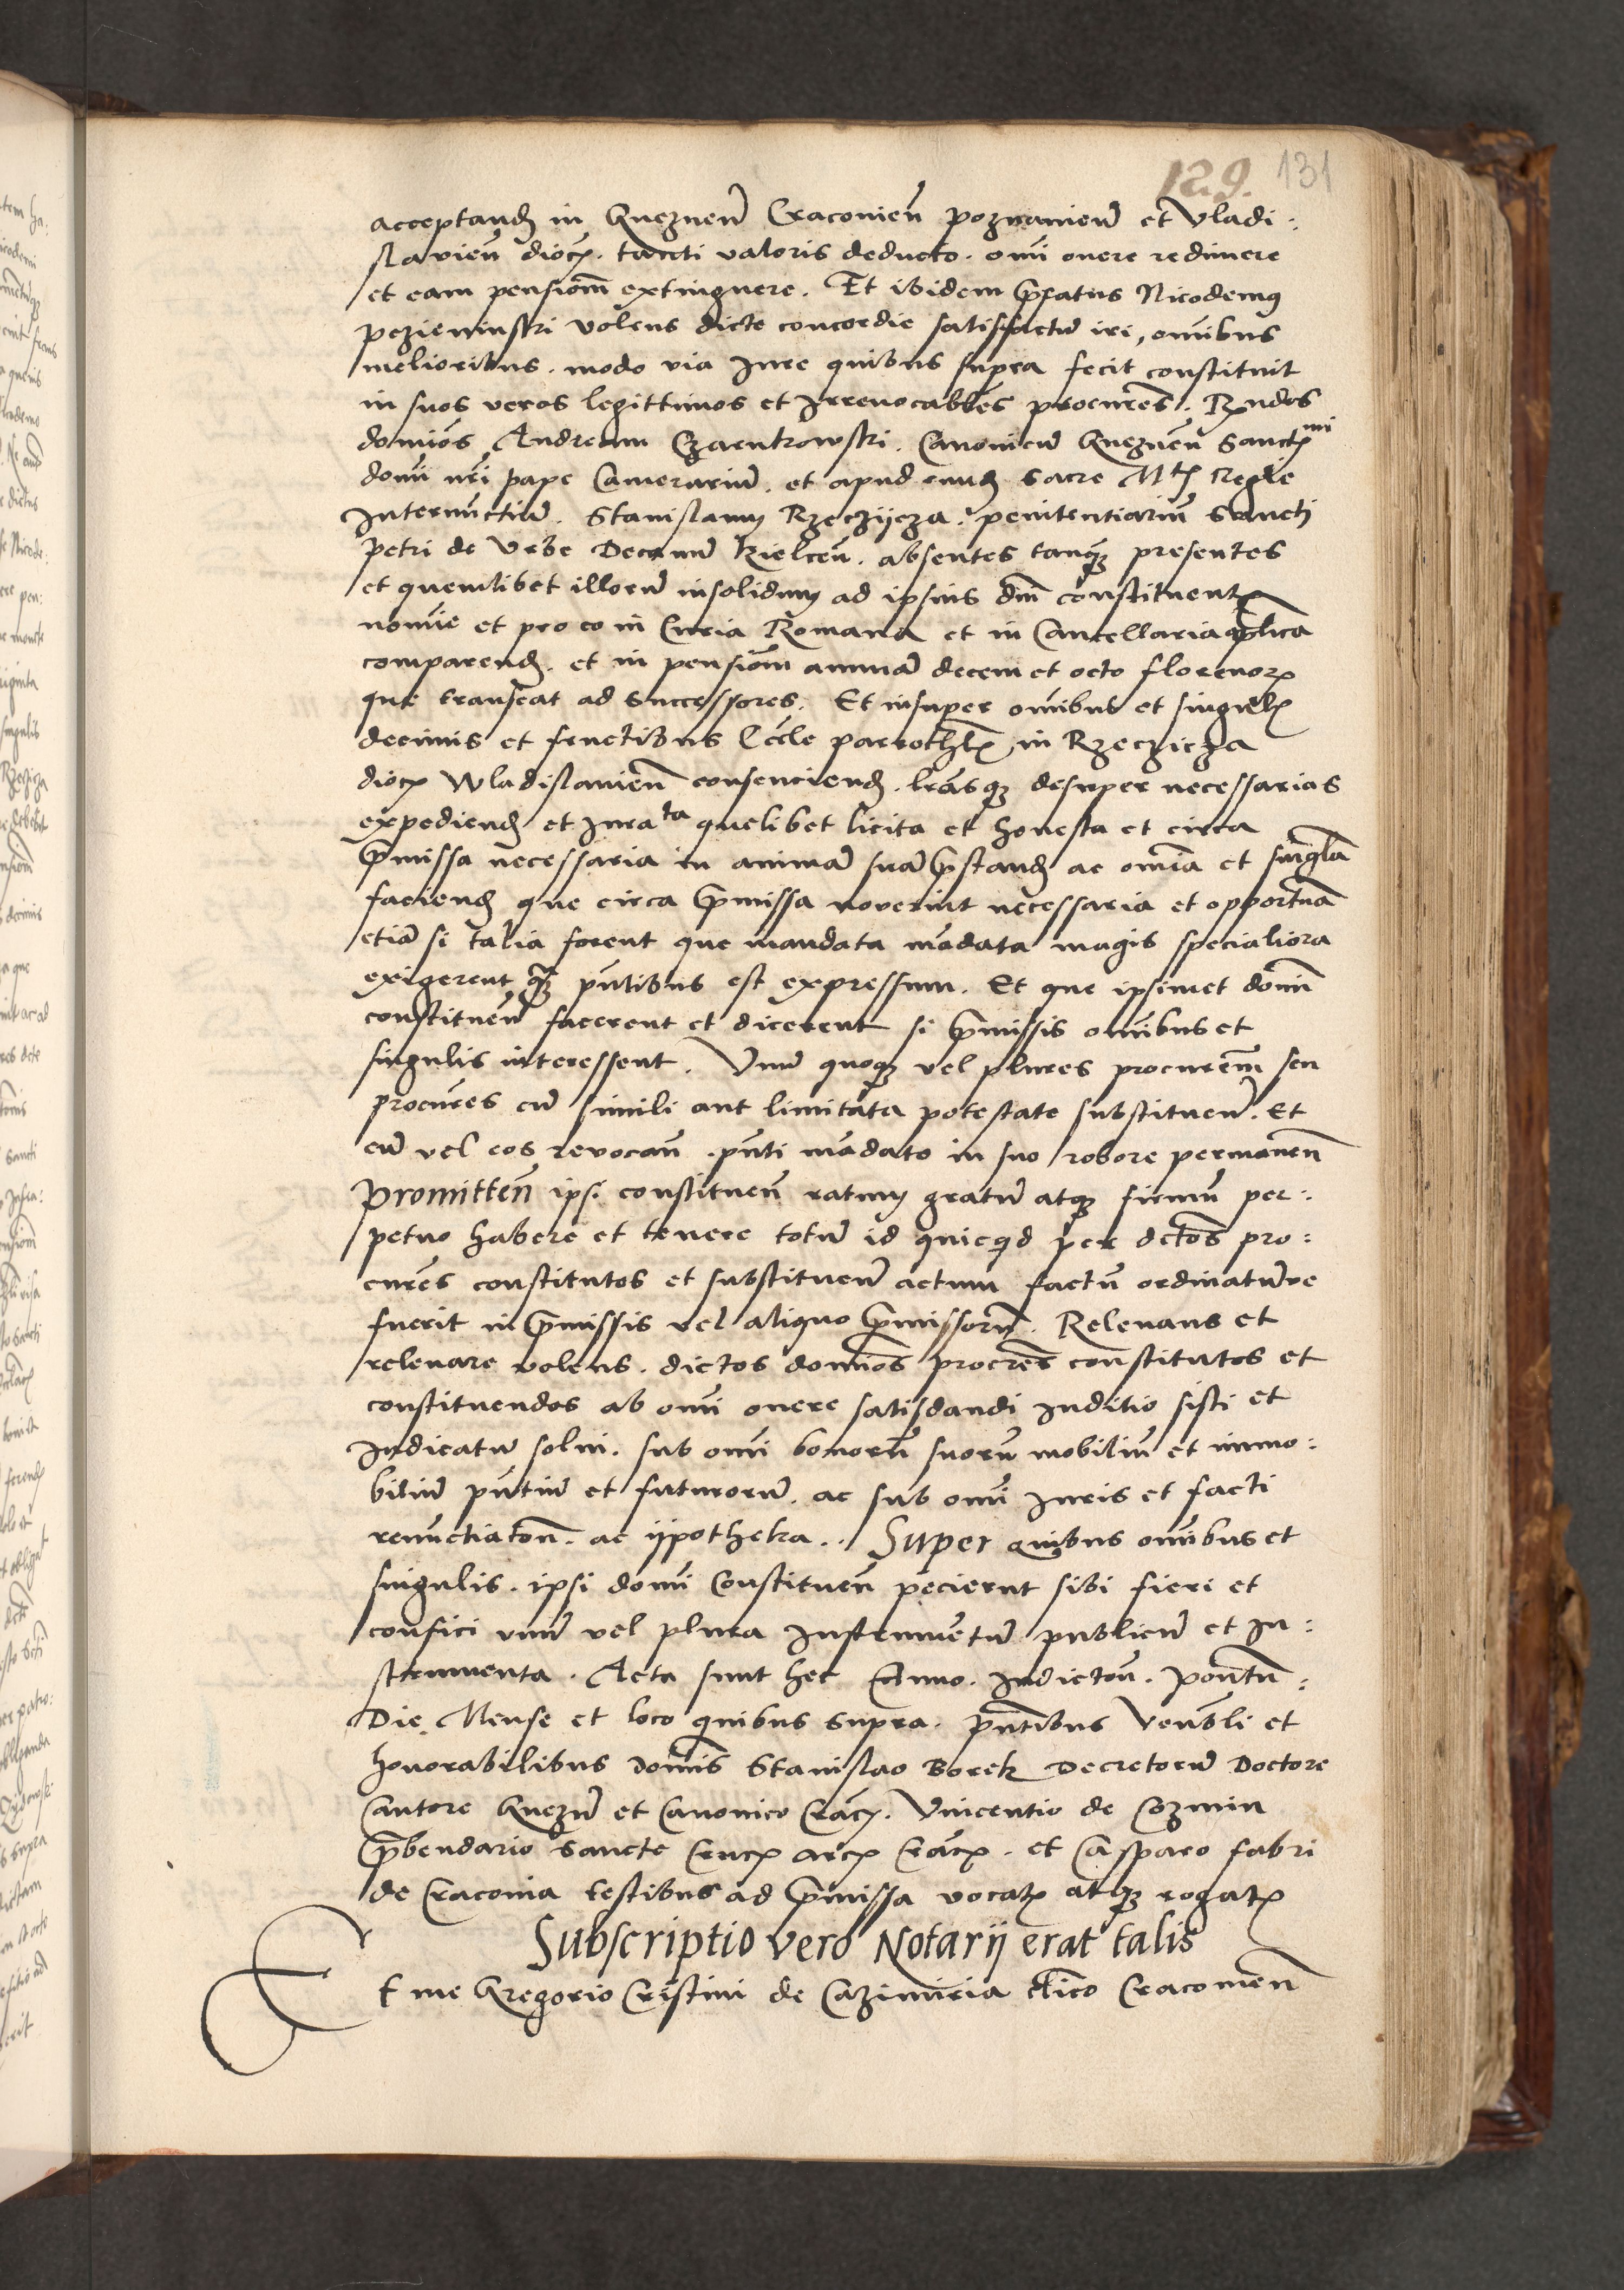 129. 131
acceptand in Gneznen̄ Cracovien̄ Poznanien̄ et Vladi:
slavien̄ dioc. tanti valoris deducto. om̄i onere redimere
et eam pension̄em extinguere. Et ibidem p̄fatus Nicodemus
volens dicte concordie satisfactū iri, om̄ibus
melioribus. modo via Jure quibus supra fecit constituit
in suos veros legittimos et Irrevocab̄les procur̄es. R̄ndos
domīos Andream Czarnkowski. Canonicū Gneznen̄ Sanctmi
domī n̄ri pape Camerariū. et apud eund sacre Mtis Regie
Internūctiū. Stanislaum Rzeczijcza. penitentiariū Sancti
Petri de Urbe Decanū kielcen̄. absentes tanq̄ presentes
et quemlibet illorū insolidum ad ipsius d̄ni constituentis
nomīe et pro eo in Curia Romana et in Cancellaria ap̄lica
comparend. et in pensiōem annuā decem et octo florenor
que transeat ad successores. Et insuper om̄ibus et singulis
decimis et fructibus Ecc̄le parrochlis in Rzeczicza
dioc Wladislavien̄ consenciend. l̄rasq desuper necessarias
expediend et Jurata quelibet licita et honesta et circa
p̄missa necessaria in animā suā p̄stand ac om̄ia et singl̄a
faciend que circa p̄missa noverint necessaria et opportūa
etiā si talia forent que mandata mādata magis specialiora
exigerent q̄ p̄ntibus est expressum. Et que ipsimet domī
constituen̄ facerent et dicerent si p̄missis om̄ibus et
singulis interessent. Vnū quoq vel plures procur̄em seu
procur̄es cū simili aut limitata potestate substituen̄. Et
eū vel eos revocan̄. p̄nti mādato in suo robore permanen̄
Promitten̄ ipsi constituen̄ ratum gratū atq firmū per:
petuo habere et tenere totū id quicq̄d per dctos pro:
cur̄es constitutos et substituen̄ actum factū ordinatūve
fuerit in p̄missis vel aliquo p̄missorū. Relevans et
relevare volens. dictos domīos procr̄es constitutos et
constituendos ab om̄i onere satisdandi Juditio sisti et
Judicatū solvi. sub om̄i bonorū suorū mobiliū et immo:
biliū p̄ntiū et futurorū. ac sub om̄i Juris et facti
renūctiatōn. ac ijpotheka.. Super quibus om̄ibus et
singulis. ipsi domī Constituen̄ pecierūt sibi fieri et
confici unū vel plura Instrumentū publicū et In:
strumenta. Acta sunt hec Anno. Indictōn. Pontū:
Die Mense et loco quibus supra. p̄ntibus Ven̄bli et
honorabilibus domīs Stanislao Borek Decretorū Doctore
Cantore Gnezn̄ et Canonico Crac̄. Vincentio de Cozmin
p̄bendario Sancte Crucis arcis Crac̄. et Casparo fabri
de Cracovia testibus ad p̄missa vocatis atq rogatis
Subscriptio vero Notarij erat talis
Et me Gregorio Cristini de Cazimiria cl̄ico Cracovien̄